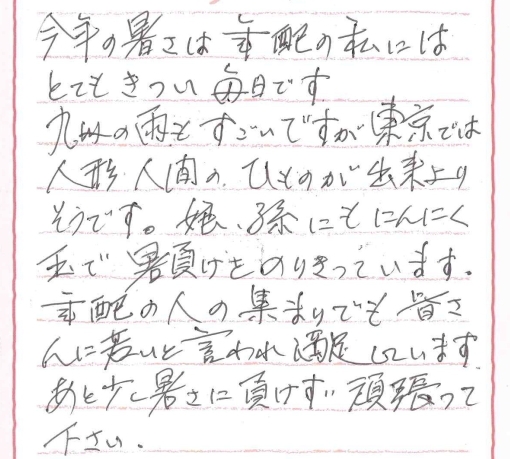 今年の暑さは年配の私には
とてもきつい毎日です
九州の雨もすごいですが東京では
人形人間の、ひものが出来より
そうです。娘、孫にもにんにく
玉で暑負けをのりきっています。
年配の人の集まりでも皆さ
んに若いと言われ満足しています
あと少し暑さに負けず頑張って
下さい。